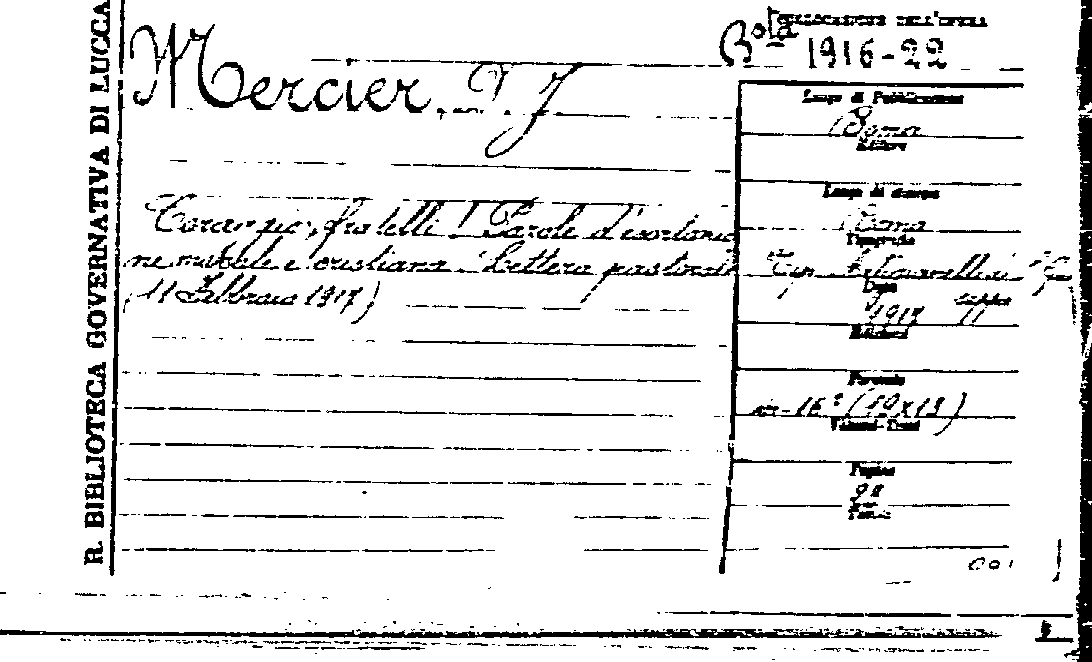 R. BIBLIOTECA GOVERNATIVA DI LUCCA
Mercier, D. J
Coraggio, fratelli! Parole d'esortazio
ne morale e cristiana. Lettera pastorale
(11 Febbraio 1917)
COLLOCAZIONE DELL'OPERA
Bsta
1916-22
Luogo di Pubblicazione
Roma
Editore
Luogo di stampa
Roma
Tipografia
Tip.
Data
1917
Edizioni
Formato
in-16° (19x13)
Volumi-Tomi
Pagine